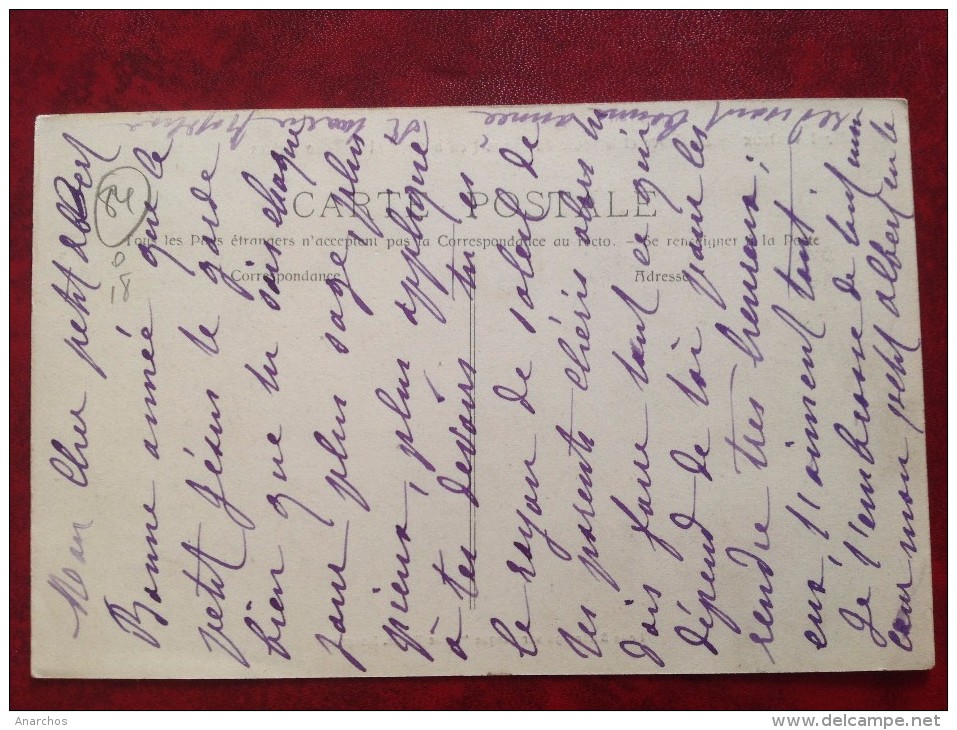 Mon Cher petit Albert
Bonne année que le
petit Jésus te garde
bien que tu sois chaque
jour plus sage plus
pieux, plus appliqué
à tes devoirs tu es
le rayon de soleil de
tes parents chéris alors tu
dois faire tout ce qui
dépend de toi pour les
rendre très heureux,
eux t'aiment tant
Je t'embrasse de tout mon
cœur mon petit Albert
année
CARTE POSTALE
Tous les Pays étrangers n'acceptent pas la Correspondance au recto. - Se renseigner à la Poste
Correspondance
Adresse
84
0
18
Anarchos
www.delcampe.net